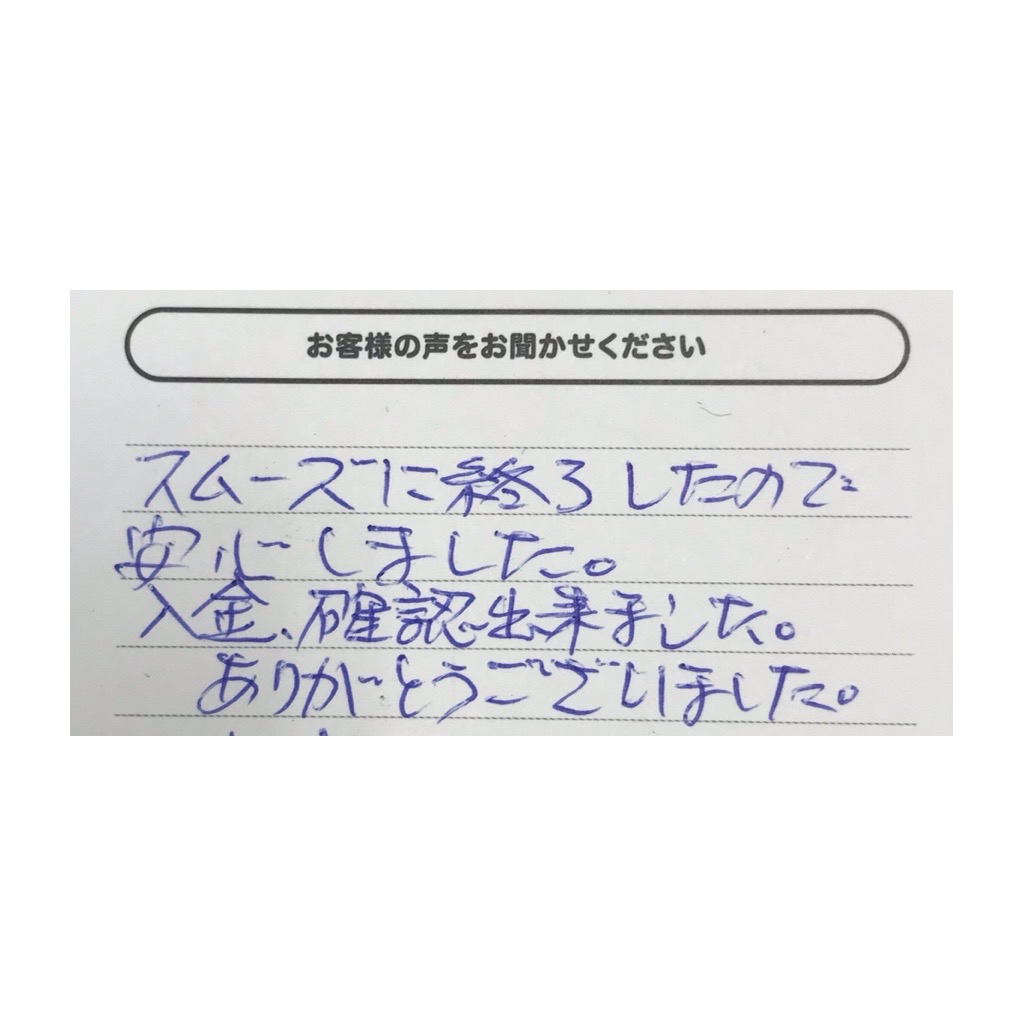 お客様の声をお聞かせください
スムーズに終ろしたので
安心しました。
入金、確認出来ました。
ありがとうございました。